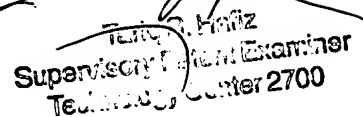 Tariq R. Hafiz
Supervisory Patent Examiner
Technology Center 2700